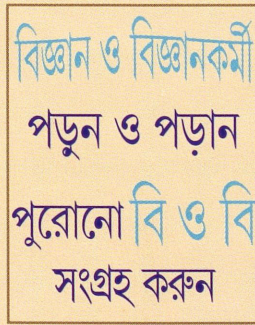 বিজ্ঞান ও বিজ্ঞানকর্মী
পড়ুন ও পড়ান
পুরোনো বি ও বি
সংগ্রহ করুন